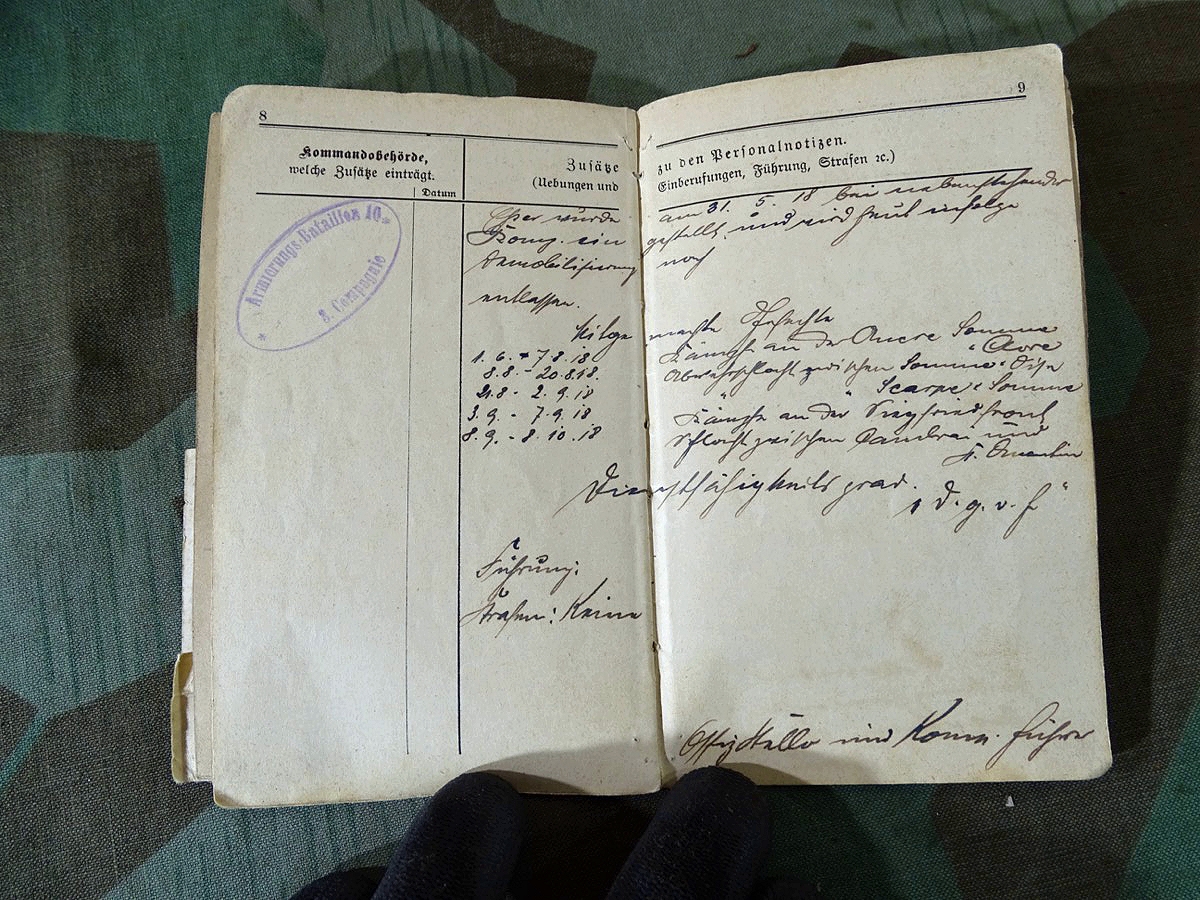 8
Kommandobehörde,
welche Zusätze einträgt.
Datum
Zusätze
(Uebungen und
* Armierungs-Bataillon 10 *
3. Compagnie
9
zu den Personalnotizen.
Einberufungen, Führung, Strafen ꝛc.)
wurde am 31. 5. 18 bei nebenstehender
Komp. ein gestellt und wird heut infolge
Demobilisierung noch
entlassen.
Mitge machte Gefechte
1. 6. - 7. 8. 18 Kämpfe an der Ancre Somme Avre
8.8. - 20.8.18. Abwehrschlacht zwischen Somme Oise
21.8 - 2. 9. 18 " " Scarpe Somme
3. 9. - 7. 9. 18 Kämpfe an der Siegfriedfront
8. 9. - 8. 10. 18 Schlacht zwischen Cambrai und
St. Quentin
Dienstfähigkeits grad.
„d. g. v. f"
Führung:
Strafen: Keine
und Komp. führer